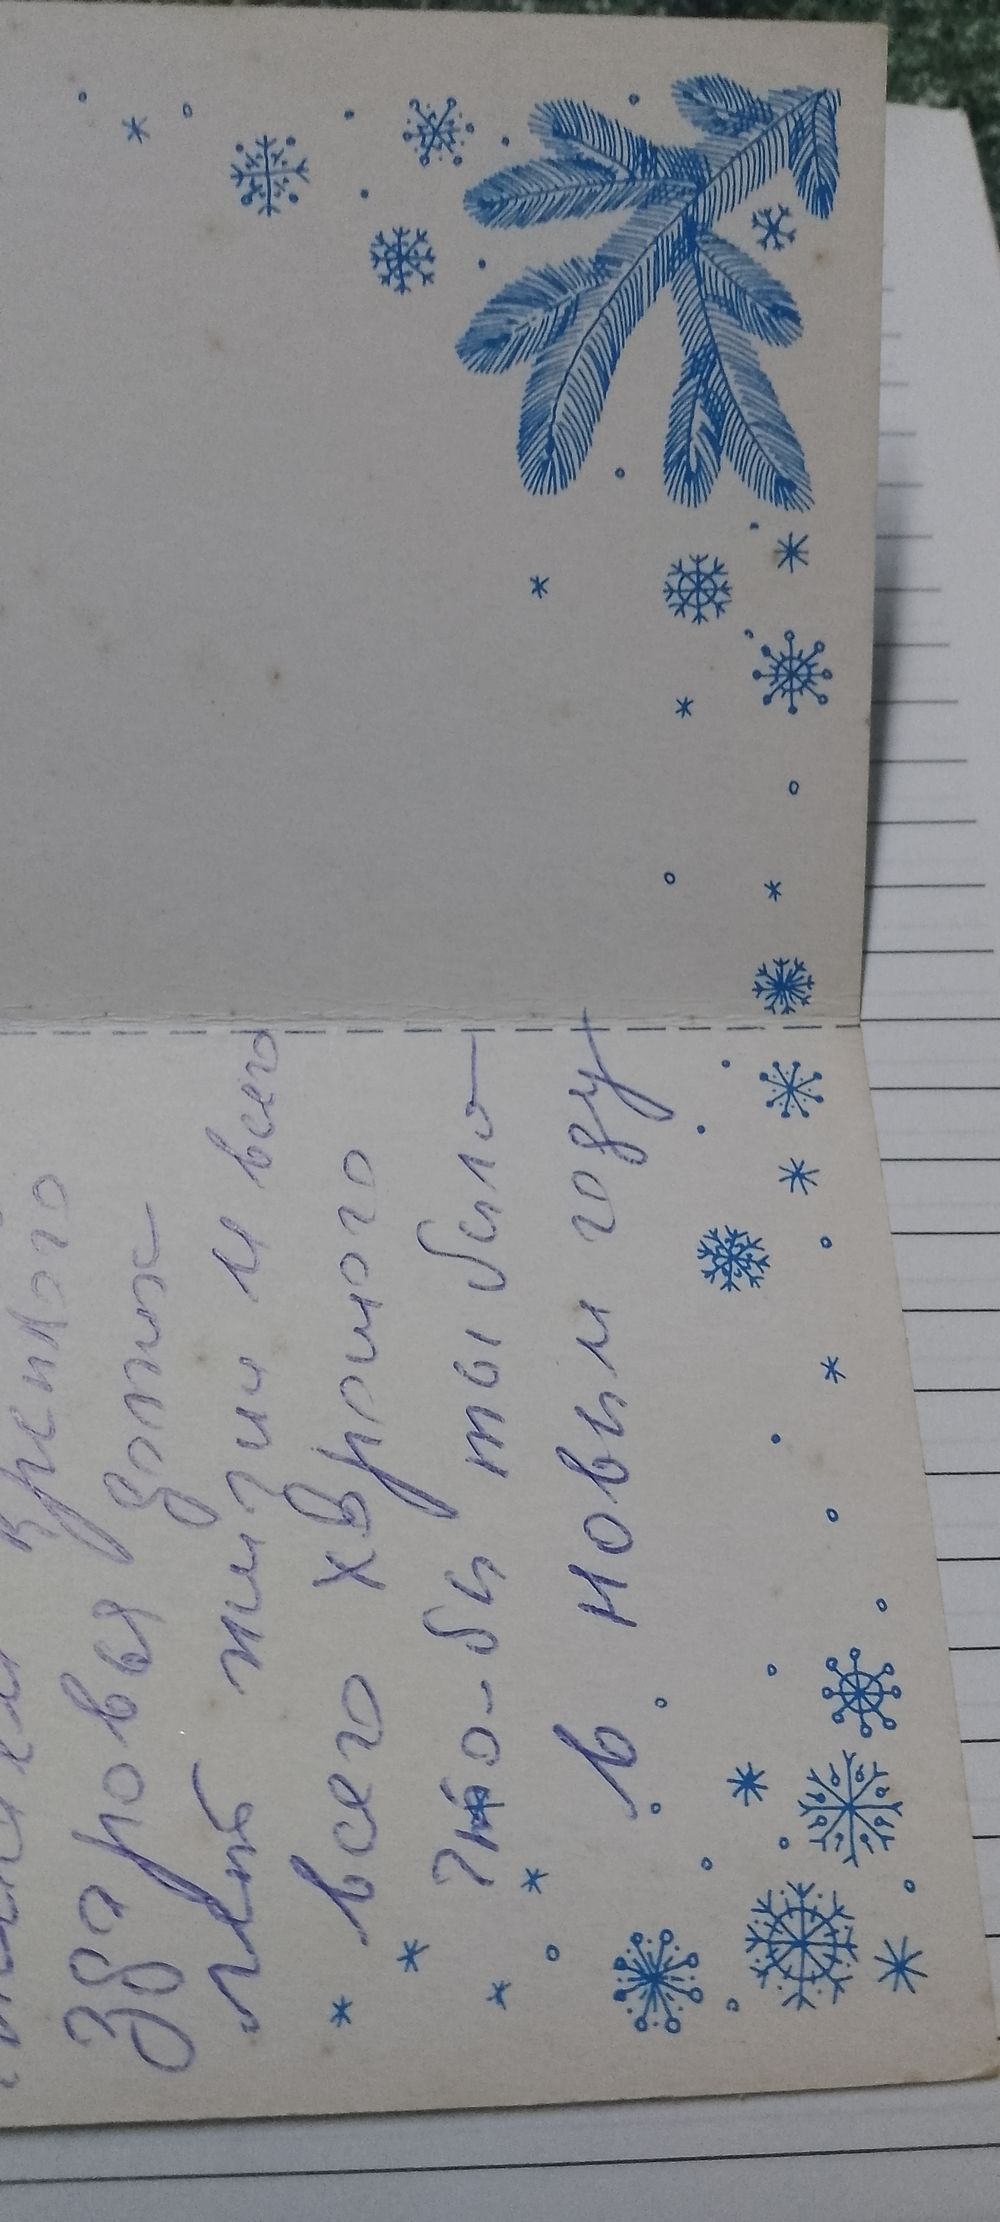 крепкого
здаровья долгих
лет жизни и всего
всего хорошего
что-бы ты было
в новым году